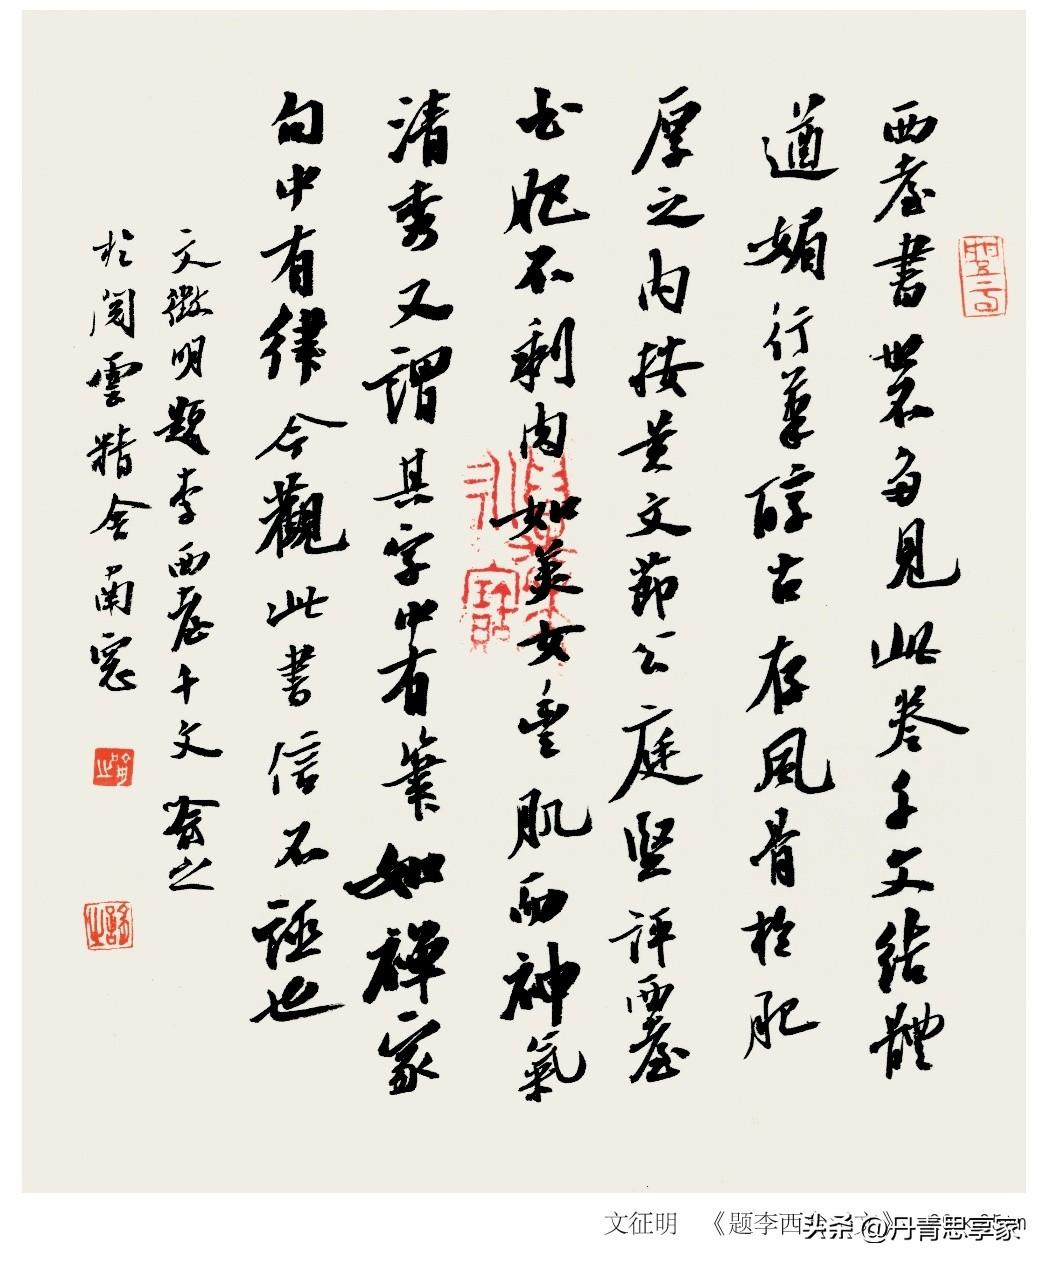 西臺書世不多見此卷千文結體
遒媚行筆醇古存風骨於肥
厚之内按黄文節公庭堅評西臺
书肥不剩肉如美女豐肌而神氣
清秀又謂其字中有筆如禪家
句中有律今觀此書信不誣也
文徵明題李西臺千文
於閲雲精舍南窓
文征明 《题李西
头条 @丹青思享家